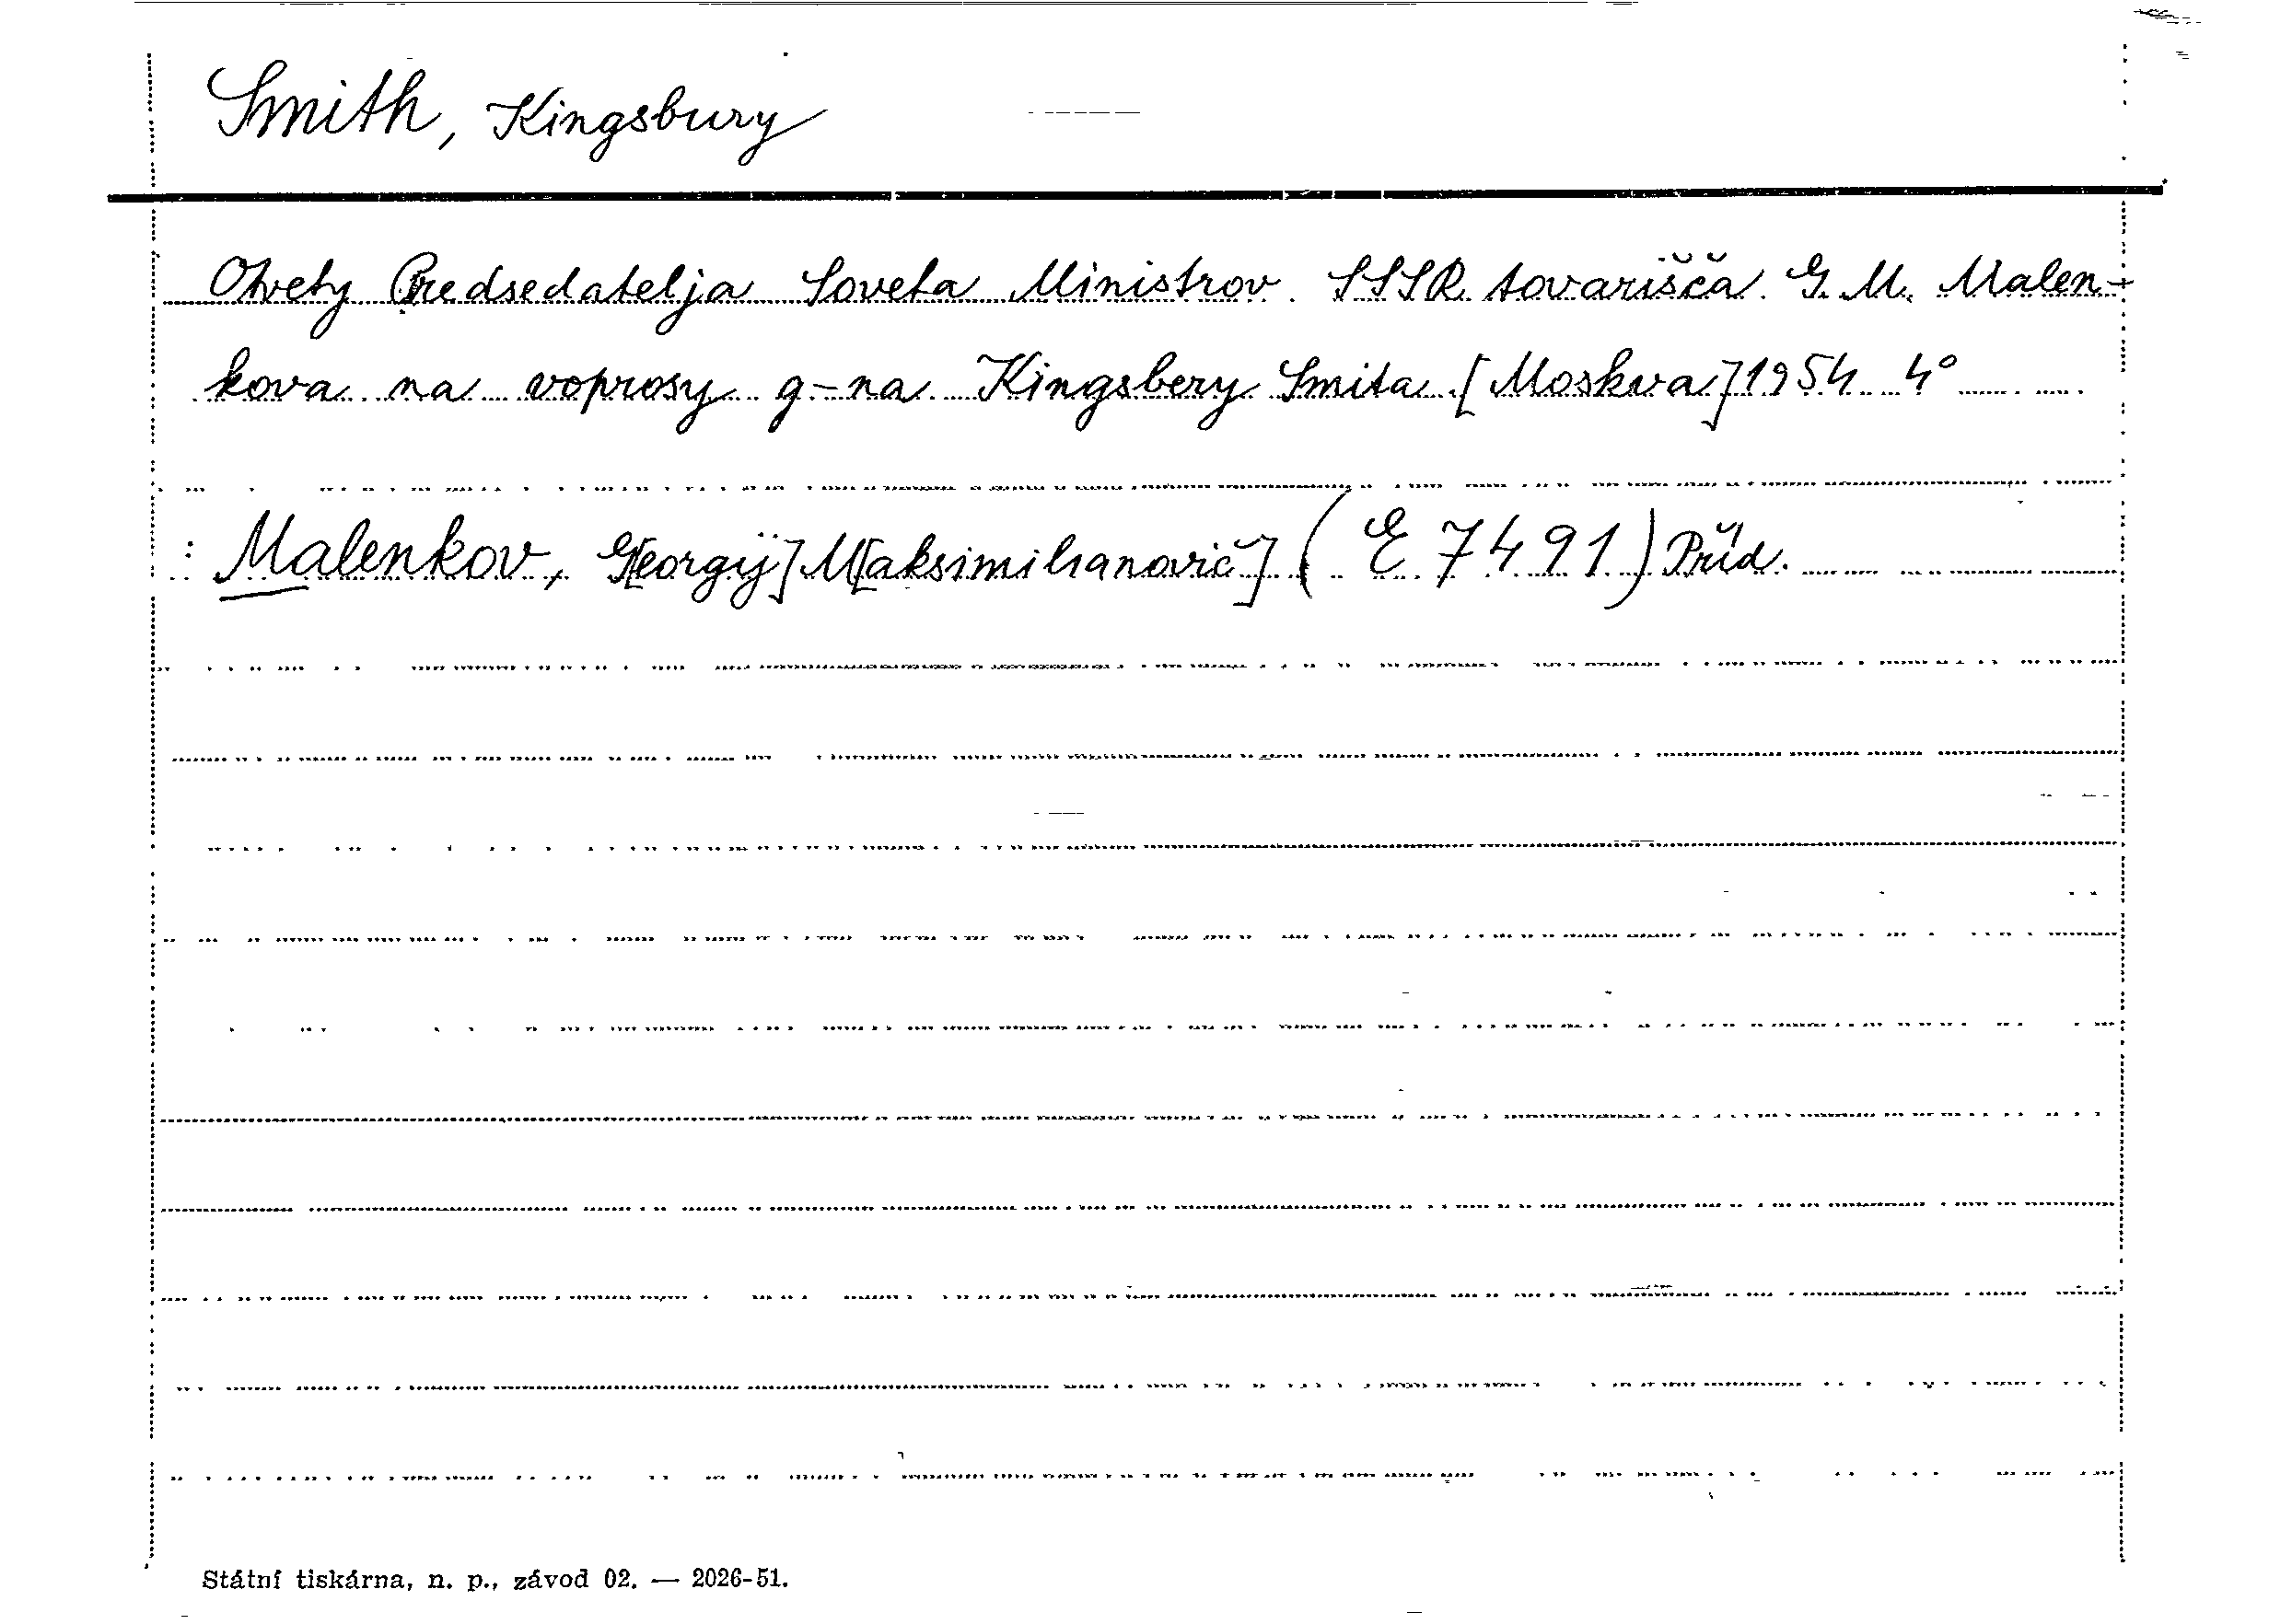 Smith, Kingsbury
Otvety Predsedatelja Soveta Ministrov SSSR tovarišča G. M. Malen-
kova na voprosy g-na Kingsbery Smita [Moskva] 1954 4°
: Malenkov, G[eorgij] M[aksimilianovič] (E 7491) Příd.
Státní tiskárna, n. p., závod 02. — 2026-51.